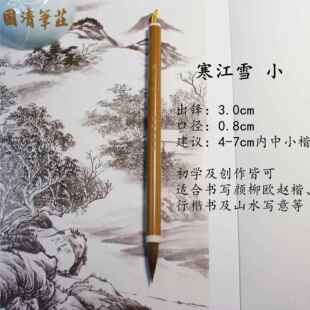 國清筆莊
寒江雪 小
出锋：3.0cm
口径：0.8cm
建议：4-7cm内中小楷
初学及创作皆可
适合书写颜柳欧赵楷、
行楷书及山水写意等